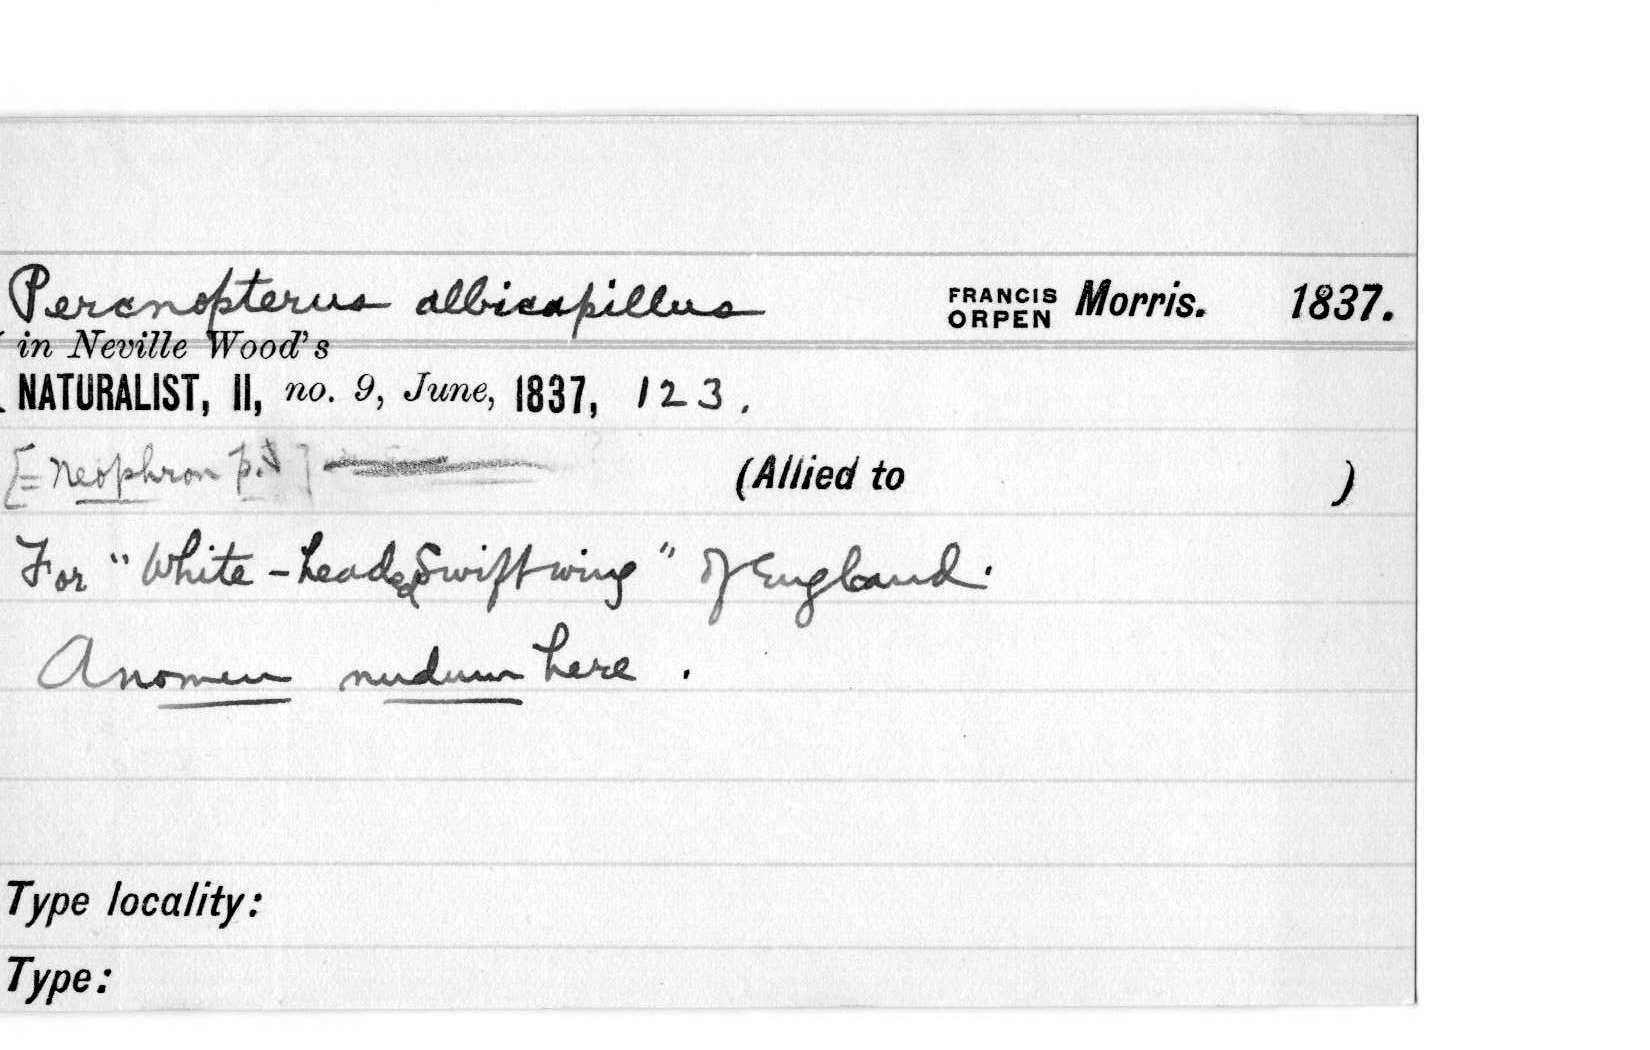 Percnopterus albicapillus FRANCIS ORPEN Morris. 1837.
( in Neville Wood's
NATURALIST, II, no. 9, June, 1837, 123.
[= Neophron p. ] (Allied to )
For "White-headed Swiftwing" of England.
A nomen nudum here.
Type locality:
Type: